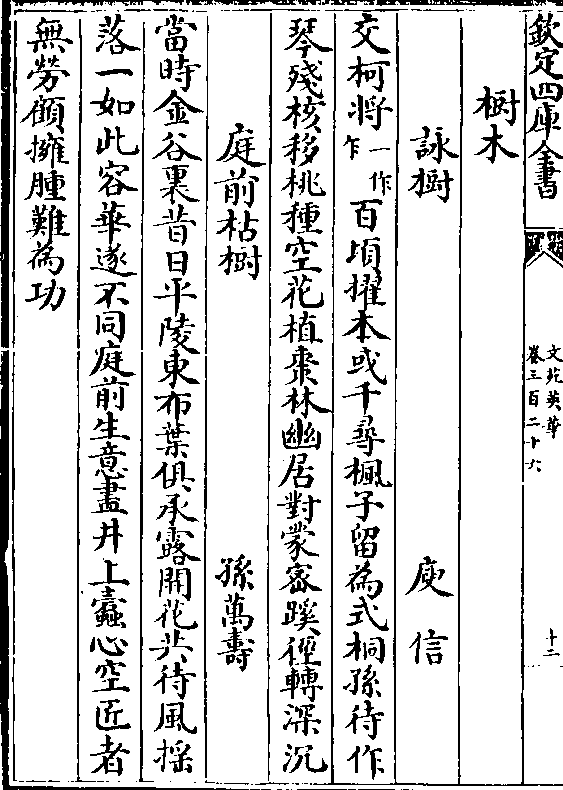 欽定四庫全書
文苑英華
卷三百二十六
十二
樹木
詠樹 庾信
交柯將一作乍百頃擢本或千尋楓子留為式桐孫待作
琴殘核移桃種空花植棗林幽居對蒙宻蹊徑轉深沉
庭前枯樹 孫萬壽
當時金谷裏昔日平陵東布葉俱承露開花共待風揺
落一如此容華遂不同庭前生意盡井上蠧心空匠者
無勞顧擁腫難為功